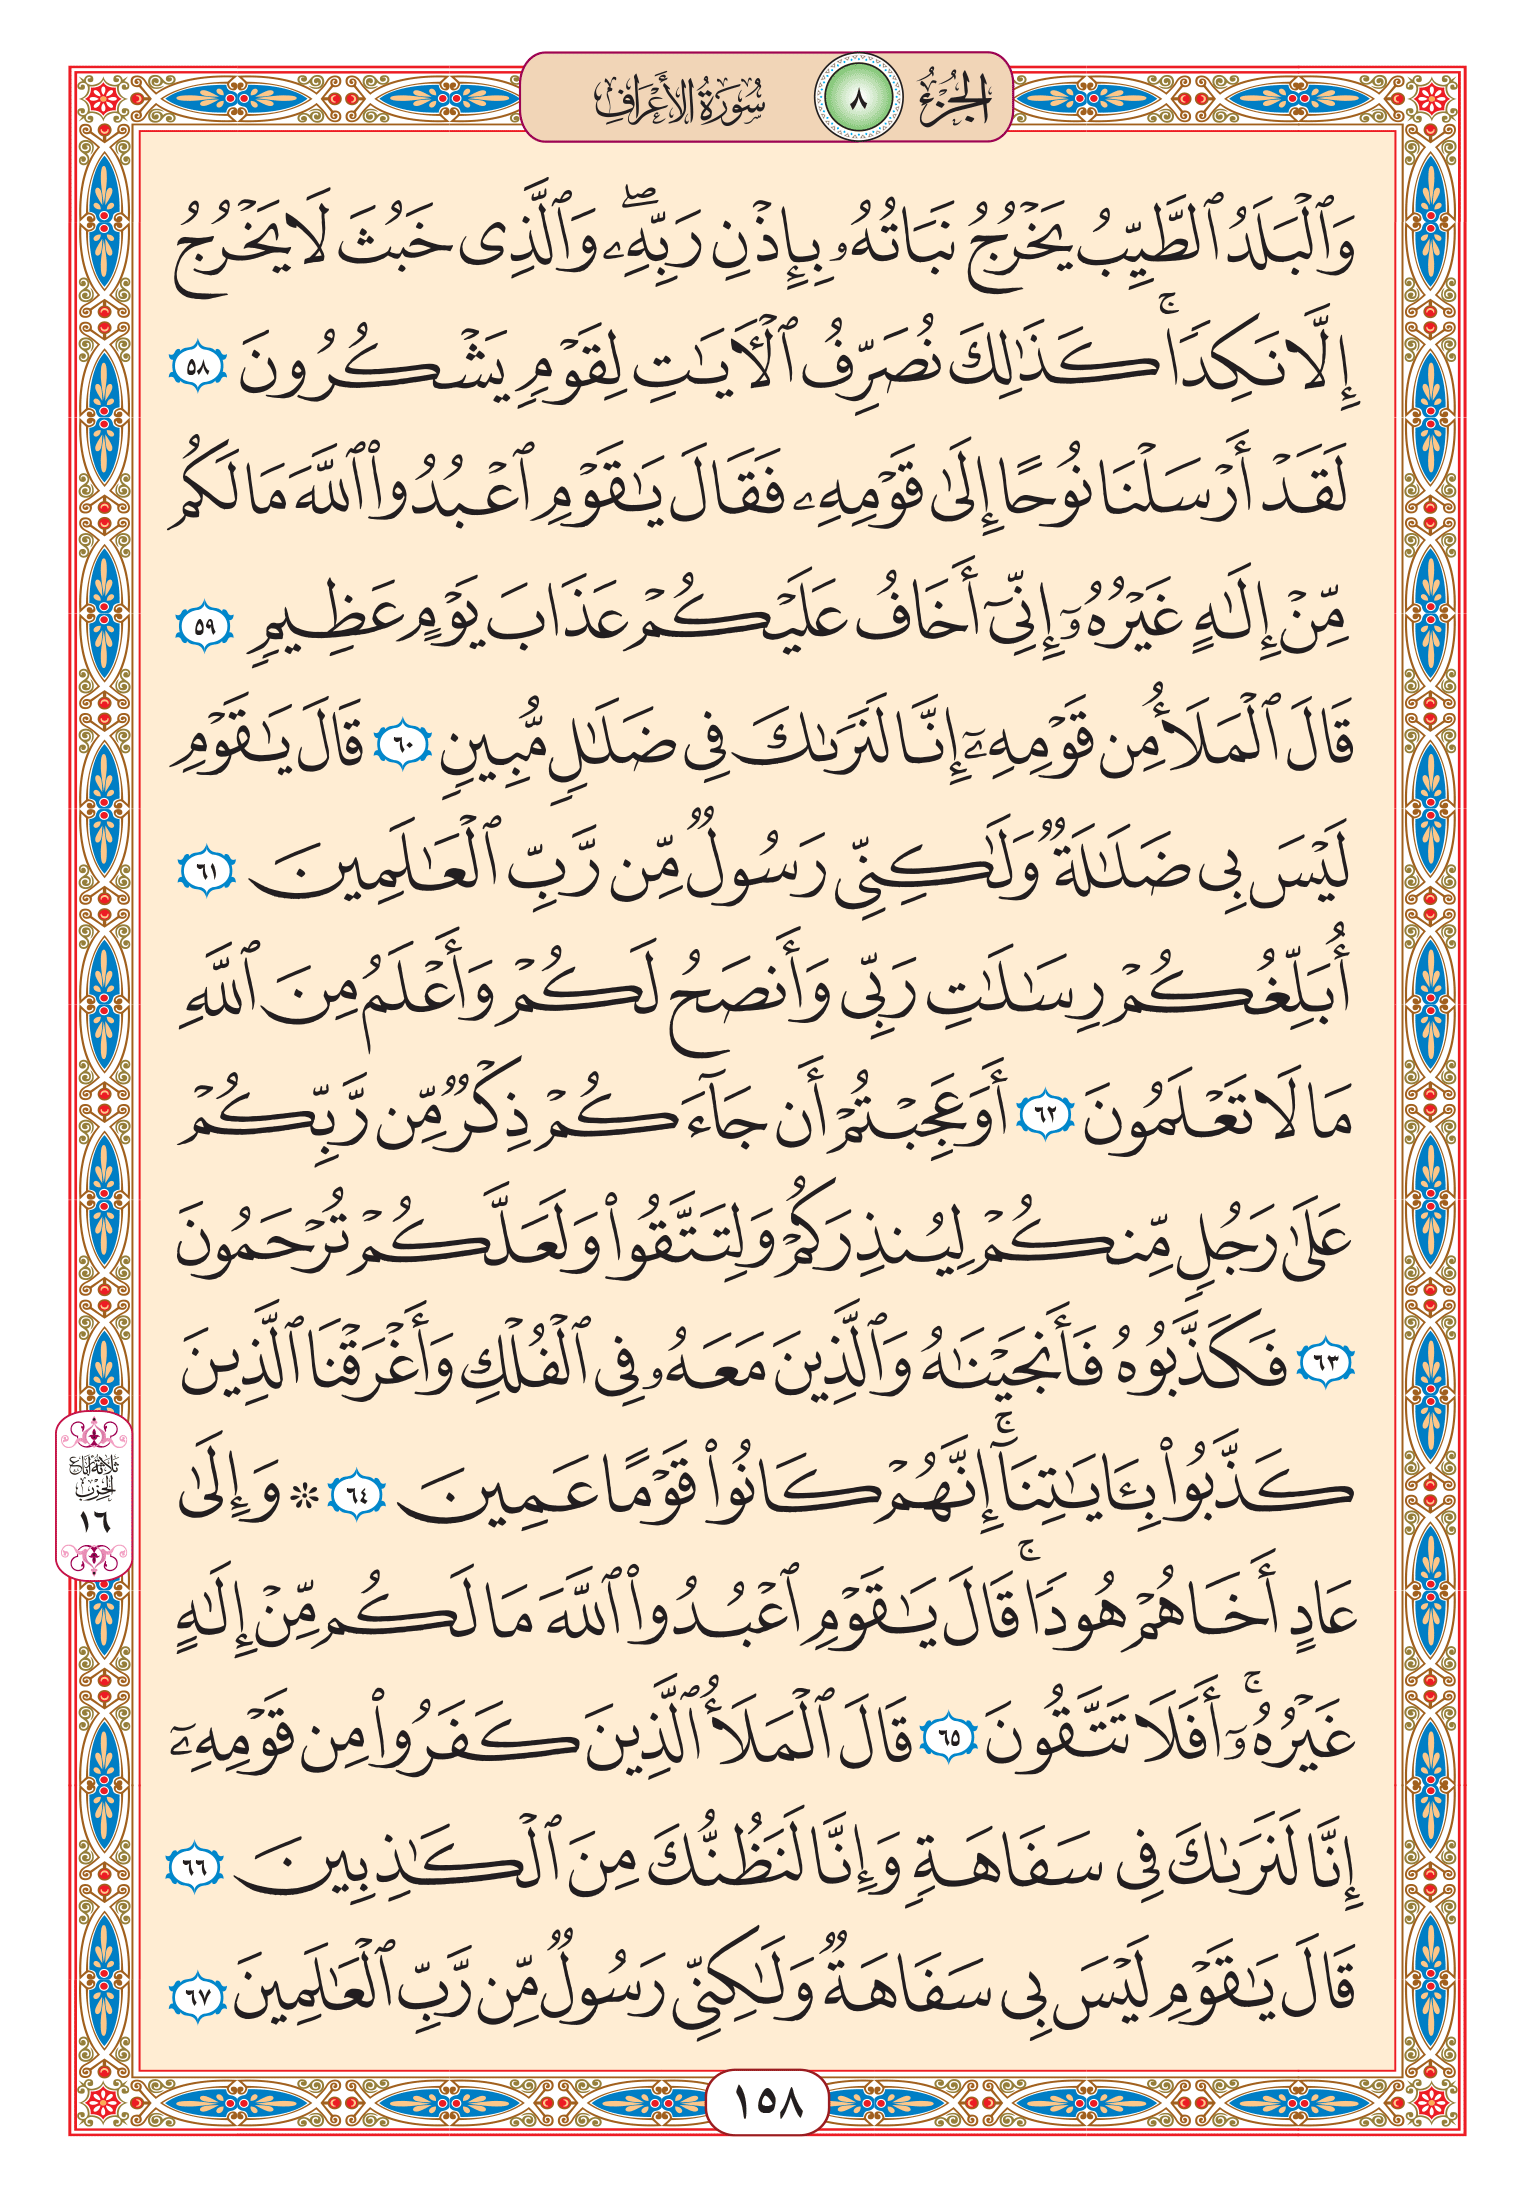 الجزء ٨ سورة الأعراف
وَٱلۡبَلَدُ ٱلطَّيِّبُ يَخۡرُجُ نَبَاتُهُۥ بِإِذۡنِ رَبِّهِۦۖ وَٱلَّذِى خَبُثَ لَا يَخۡرُجُ
إِلَّا نَكِدًاۚ كَذَٰلِكَ نُصَرِّفُ ٱلۡأَيَٰتِ لِقَوۡمٍ يَشۡكُرُونَ ٥٨
لَقَدۡ أَرۡسَلۡنَا نُوحًا إِلَىٰ قَوۡمِهِۦ فَقَالَ يَٰقَوۡمِ ٱعۡبُدُواْ ٱللَّهَ مَا لَكُم
مِّنۡ إِلَٰهٍ غَيۡرُهُۥٓ إِنِّىٓ أَخَافُ عَلَيۡكُمۡ عَذَابَ يَوۡمٍ عَظِيمٍ ٥٩
قَالَ ٱلۡمَلَأُ مِن قَوۡمِهِۦٓ إِنَّا لَنَرَىٰكَ فِى ضَلَٰلٍ مُّبِينٍ ٦٠ قَالَ يَٰقَوۡمِ
لَيۡسَ بِى ضَلَٰلَةٌ وَلَٰكِنِّى رَسُولٌ مِّن رَّبِّ ٱلۡعَٰلَمِينَ ٦١
أُبَلِّغُكُمۡ رِسَٰلَٰتِ رَبِّى وَأَنصَحُ لَكُمۡ وَأَعۡلَمُ مِنَ ٱللَّهِ
مَا لَا تَعۡلَمُونَ ٦٢ أَوَعَجِبۡتُمۡ أَن جَآءَكُمۡ ذِكۡرٌ مِّن رَّبِّكُمۡ
عَلَىٰ رَجُلٍ مِّنكُمۡ لِيُنذِرَكُمۡ وَلِتَتَّقُواْ وَلَعَلَّكُمۡ تُرۡحَمُونَ
٦٣ فَكَذَّبُوهُ فَأَنجَيۡنَٰهُ وَٱلَّذِينَ مَعَهُۥ فِى ٱلۡفُلۡكِ وَأَغۡرَقۡنَا ٱلَّذِينَ
كَذَّبُواْ بِـَٔايَٰتِنَآۚ إِنَّهُمۡ كَانُواْ قَوۡمًا عَمِينَ ٦٤ ۞ وَإِلَىٰ
عَادٍ أَخَاهُمۡ هُودًاۚ قَالَ يَٰقَوۡمِ ٱعۡبُدُواْ ٱللَّهَ مَا لَكُم مِّنۡ إِلَٰهٍ
غَيۡرُهُۥٓۚ أَفَلَا تَتَّقُونَ ٦٥ قَالَ ٱلۡمَلَأُ ٱلَّذِينَ كَفَرُواْ مِن قَوۡمِهِۦٓ
إِنَّا لَنَرَىٰكَ فِى سَفَاهَةٍ وَإِنَّا لَنَظُنُّكَ مِنَ ٱلۡكَٰذِبِينَ ٦٦
قَالَ يَٰقَوۡمِ لَيۡسَ بِى سَفَاهَةٌ وَلَٰكِنِّى رَسُولٌ مِّن رَّبِّ ٱلۡعَٰلَمِينَ ٦٧
ثلاثة أرباع
الحزب
١٦
١٥٨